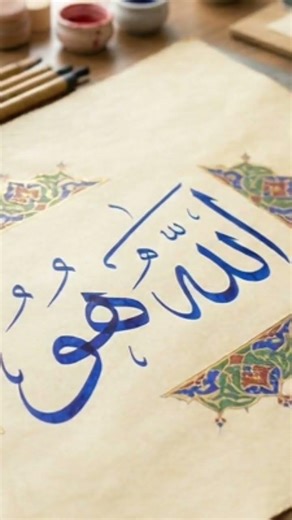 الله هُو